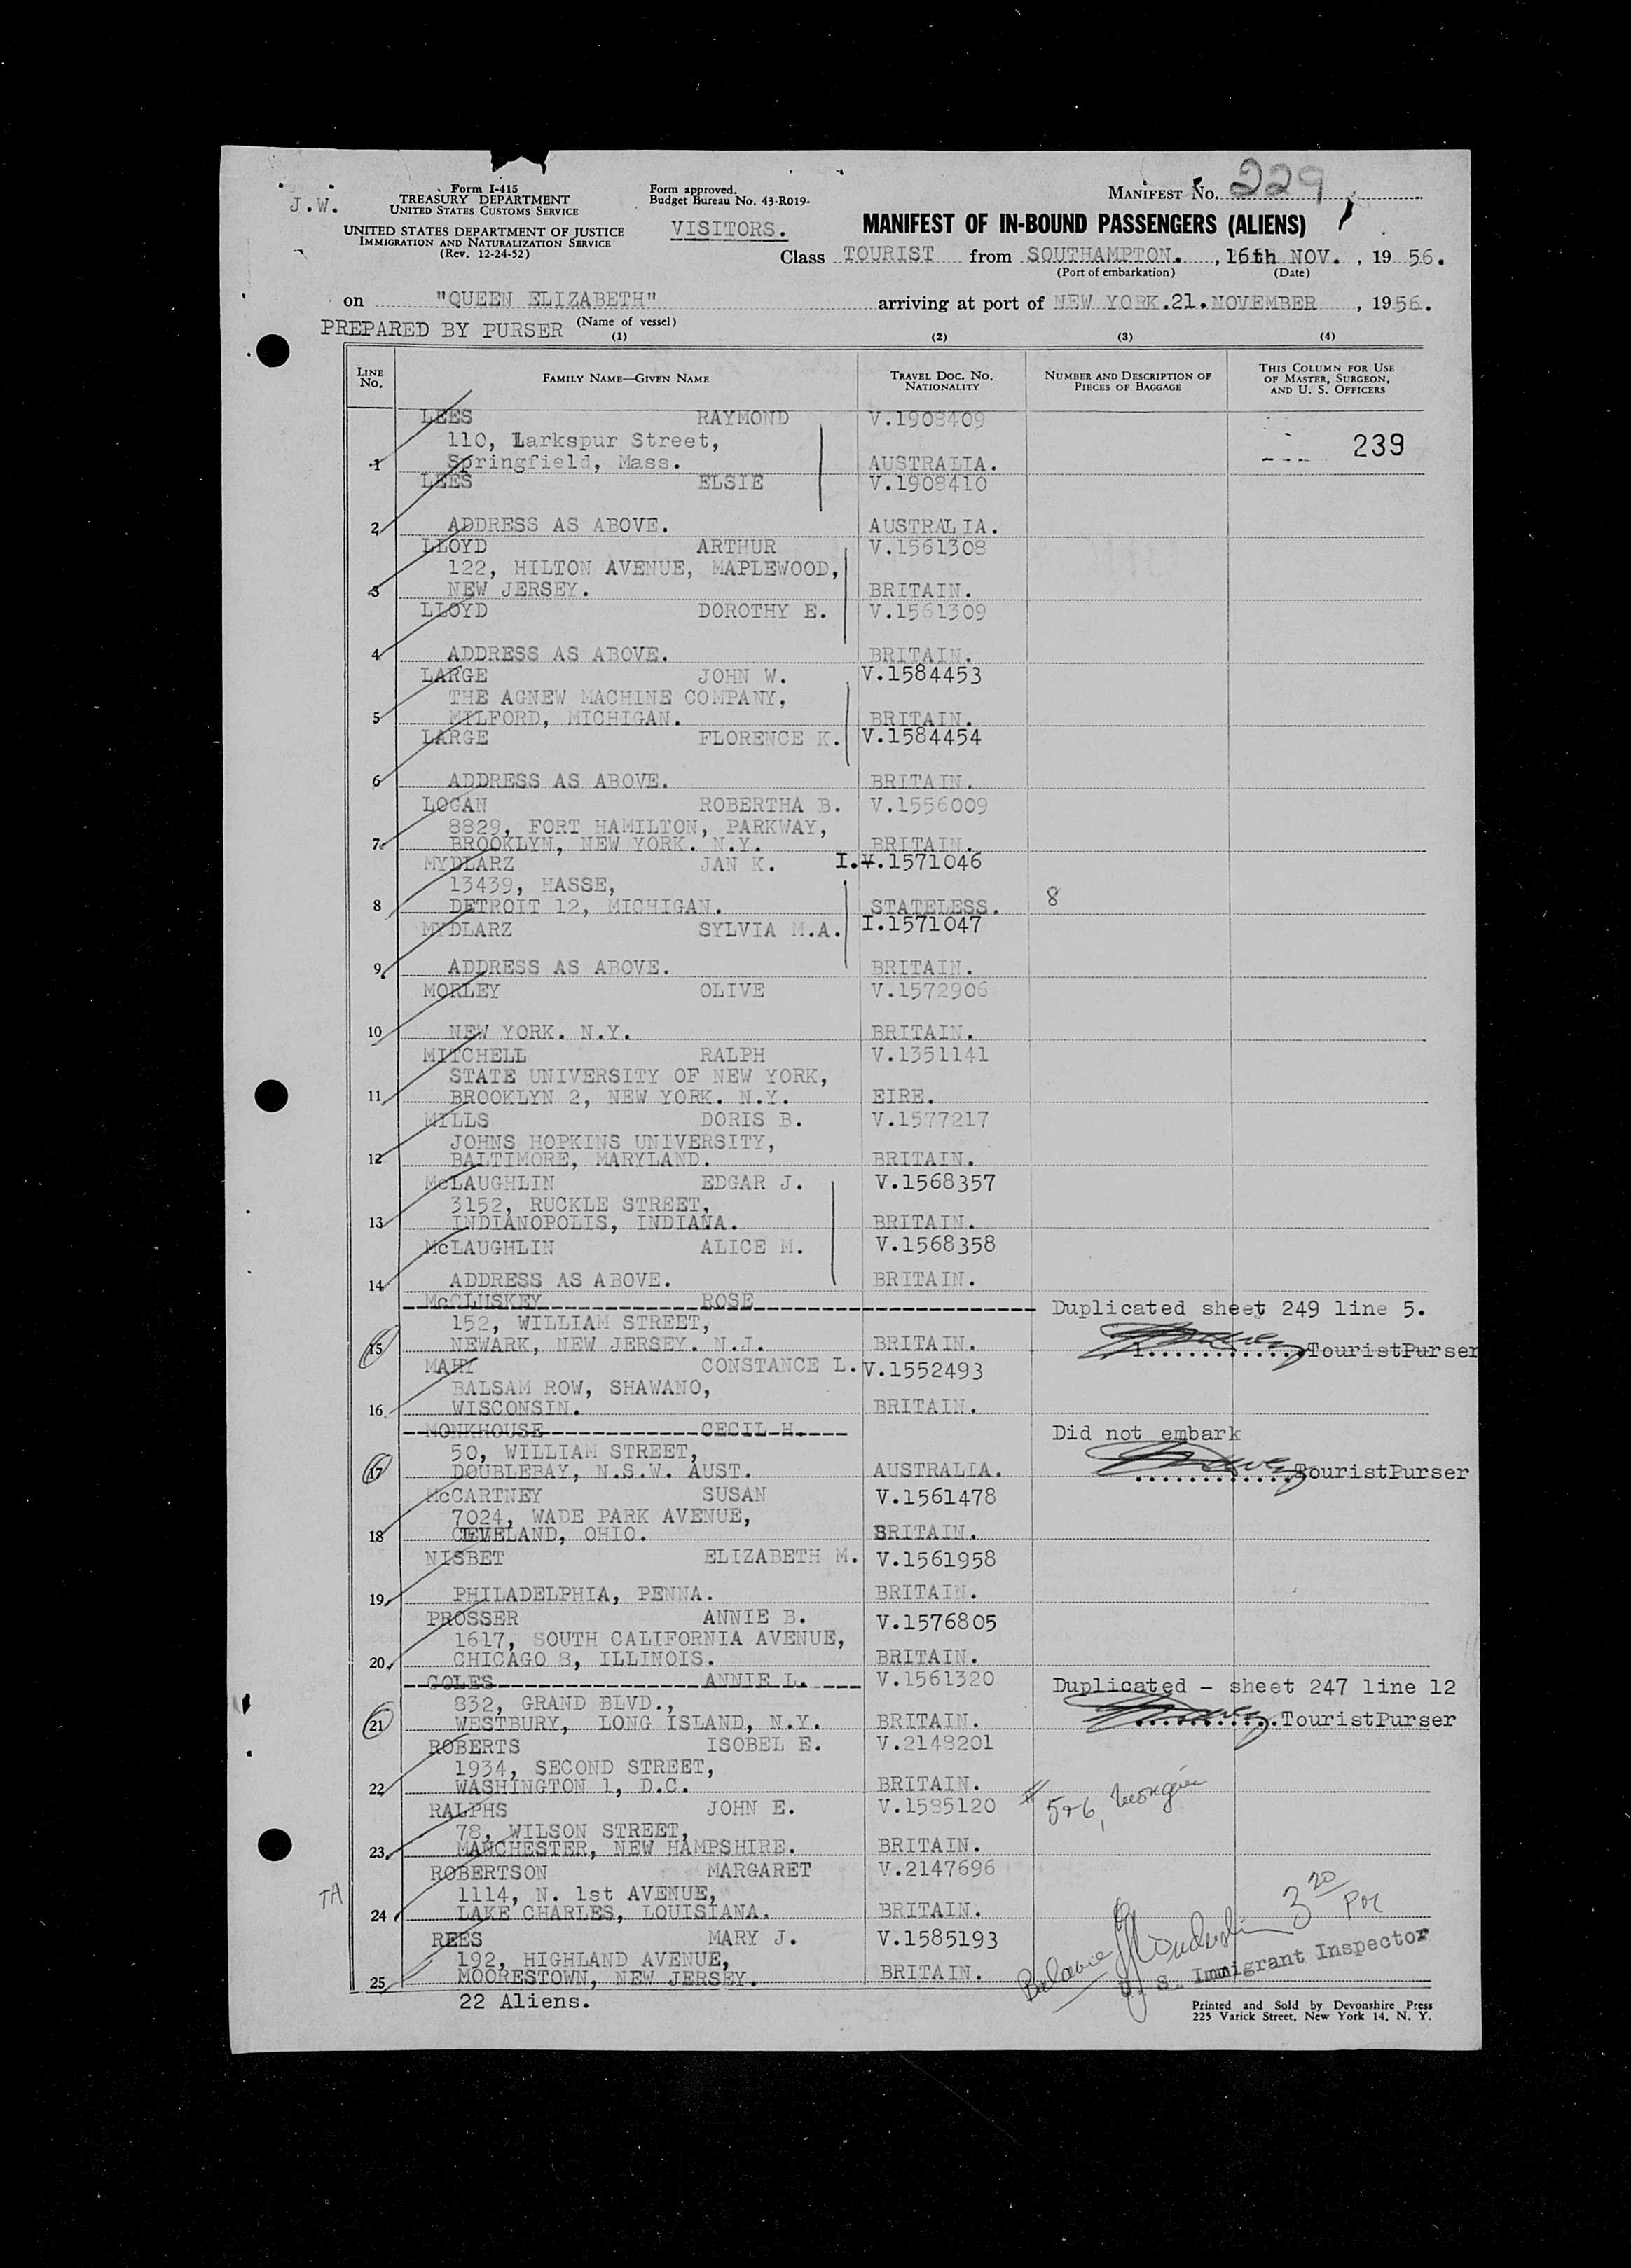 J.W.
Form I-415
TREASURY DEPARTMENT
UNITED STATES CUSTOMS SERVICE
UNITED STATES DEPARTMENT OF JUSTICE
IMMIGRATION AND NATURALIZATION SERVICE
(Rev. 12-24-52)
Form approved.
Budget Bureau No. 43-R019-
VISITORS.
MANIFEST NO. 229
MANIFEST OF IN-BOUND PASSENGERS (ALIENS)
Class TOURIST from SOUTHAMPTON. , 16th NOV. , 19 56.
(Port of embarkation) (Date)
on "QUEEN ELIZABETH" arriving at port of NEW YORK.21.NOVEMBER , 1956.
(Name of vessel)
PREPARED BY PURSER
(1) (2) (3) (4)
LINE No. FAMILY NAME—GIVEN NAME TRAVEL DOC. NO. NATIONALITY NUMBER AND DESCRIPTION OF PIECES OF BAGGAGE THIS COLUMN FOR USE OF MASTER, SURGEON, AND U. S. OFFICERS
LEES RAYMOND V.1908409
110, Larkspur Street, 239
1 Springfield, Mass. AUSTRALIA.
LEES ELSIE V.1908410
2 ADDRESS AS ABOVE. AUSTRALIA.
LLOYD ARTHUR V.1561308
122, HILTON AVENUE, MAPLEWOOD,
3 NEW JERSEY. BRITAIN.
LLOYD DOROTHY E. V.1561309
4 ADDRESS AS ABOVE. BRITAIN.
LARGE JOHN W. V.1584453
THE AGNEW MACHINE COMPANY,
5 MILFORD, MICHIGAN. BRITAIN.
LARGE FLORENCE K. V.1584454
6 ADDRESS AS ABOVE. BRITAIN.
LOGAN ROBERTHA B. V.1556009
8829, FORT HAMILTON, PARKWAY,
7 BROOKLYN, NEW YORK. N.Y. BRITAIN.
MYDLARZ JAN K. I.V.1571046
13439, HASSE,
8 DETROIT 12, MICHIGAN. STATELESS. 8
MYDLARZ SYLVIA M.A. I.1571047
9 ADDRESS AS ABOVE. BRITAIN.
MORLEY OLIVE V.1572906
10 NEW YORK. N.Y. BRITAIN.
MITCHELL RALPH V.1351141
STATE UNIVERSITY OF NEW YORK,
11 BROOKLYN 2, NEW YORK. N.Y. EIRE.
MILLS DORIS B. V.1577217
JOHNS HOPKINS UNIVERSITY,
12 BALTIMORE, MARYLAND. BRITAIN.
McLAUGHLIN EDGAR J. V.1568357
3152, RUCKLE STREET,
13 INDIANOPOLIS, INDIANA. BRITAIN.
McLAUGHLIN ALICE M. V.1568358
14 ADDRESS AS ABOVE. BRITAIN.
McCLUSKEY ROSE Duplicated sheet 249 line 5.
152, WILLIAM STREET,
15 NEWARK, NEW JERSEY. N.J. BRITAIN. TouristPurser
MAHY CONSTANCE L. V.1552493
BALSAM ROW, SHAWANO,
16 WISCONSIN. BRITAIN.
MONKHOUSE CECIL H. Did not embark
50, WILLIAM STREET,
17 DOUBLEBAY, N.S.W. AUST. AUSTRALIA. TouristPurser
McCARTNEY SUSAN V.1561478
7024, WADE PARK AVENUE,
18 CLEVELAND, OHIO. BRITAIN.
NISBET ELIZABETH M. V.1561958
19 PHILADELPHIA, PENNA. BRITAIN.
PROSSER ANNIE B. V.1576805
1617, SOUTH CALIFORNIA AVENUE,
20 CHICAGO 8, ILLINOIS. BRITAIN.
COLES ANNIE L. V.1561320 Duplicated - sheet 247 line 12
832, GRAND BLVD.,
21 WESTBURY, LONG ISLAND, N.Y. BRITAIN. TouristPurser
ROBERTS ISOBEL E. V.2148201
1934, SECOND STREET,
22 WASHINGTON 1, D.C. BRITAIN.
RALPHS JOHN E. V.1585120 # 5+6,
78, WILSON STREET,
23 MANCHESTER, NEW HAMPSHIRE. BRITAIN.
ROBERTSON MARGARET V.2147696
TA 1114, N. 1st AVENUE,
24 LAKE CHARLES, LOUISIANA. BRITAIN.
REES MARY J. V.1585193
192, HIGHLAND AVENUE,
25 MOORESTOWN, NEW JERSEY. BRITAIN.
Balance 3 20
U. S. Immigrant Inspector
22 Aliens.
Printed and Sold by Devonshire Press
225 Varick Street, New York 14, N. Y.